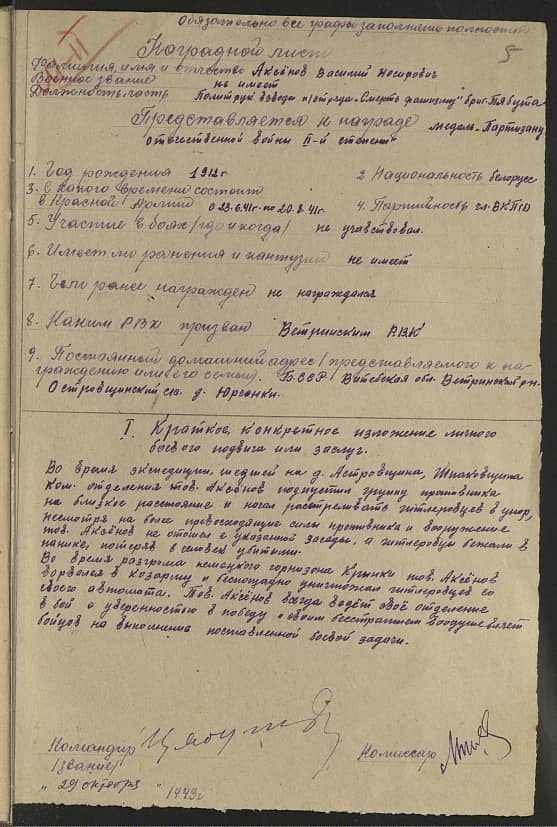 Обязательно все графы заполнять полностью
5
Наградной лист
Фамилия, имя и отчество Аксёнов Василий Носирович
Военное звание не имеет
Должность, часть Политрук взвода п/отряда „Смерть фашизму" бриг. Тябута
Представляется к награде медаль „Партизану
отечественной войны II-й степени"
1. Год рождения 1912 г. 2 Национальность белорусс
3. С какого времени состоит
в Красной Армии с 23.6.41г. по 20.8.41г. 4. Партийность чл. ВКП(б)
5. Участие в боях (где и когда) не учавствовал.
6. Имеет ли ранения и контузии не имеет
7. Чем ранее награжден не награждался
8. Каким РВК призван Ветринским РВК
9. Постоянный домашний адрес (представляемого к на-
граждению или его семьи). БССР Витебская обл. Ветринский р-н.
Островщинский с/с. д. Юрсонки.
I. Краткое, конкретное изложение личного
боевого подвига или заслуг.
Во время экспедиции, шедшей на д. Астровщина, Шпаковщина
ком. отделения тов. Аксёнов подпустил группу противника
на близкое расстояние и начал растреливать гитлеровцев в упор,
несмотря на более превосходящие силы противника и вооружение
тов. Аксёнов не отошел с указанной засады, а гитлеровцы бежали в
панике, потеряв 8 человек убитыми.
Во время разгрома немецкого горнизона Крынки тов. Аксёнов
ворвался в козарму и беспощадно уничтожал гитлеровцев со
своего автомата. Тов. Аксёнов всегда ведёт своё отделение
в бой с уверенностью в победу и своим бесстрашием воодушевляет
бойцов на выполнение поставленной боевой задачи.
Командир Комиссар
(звание)
„29 октября" 1943г